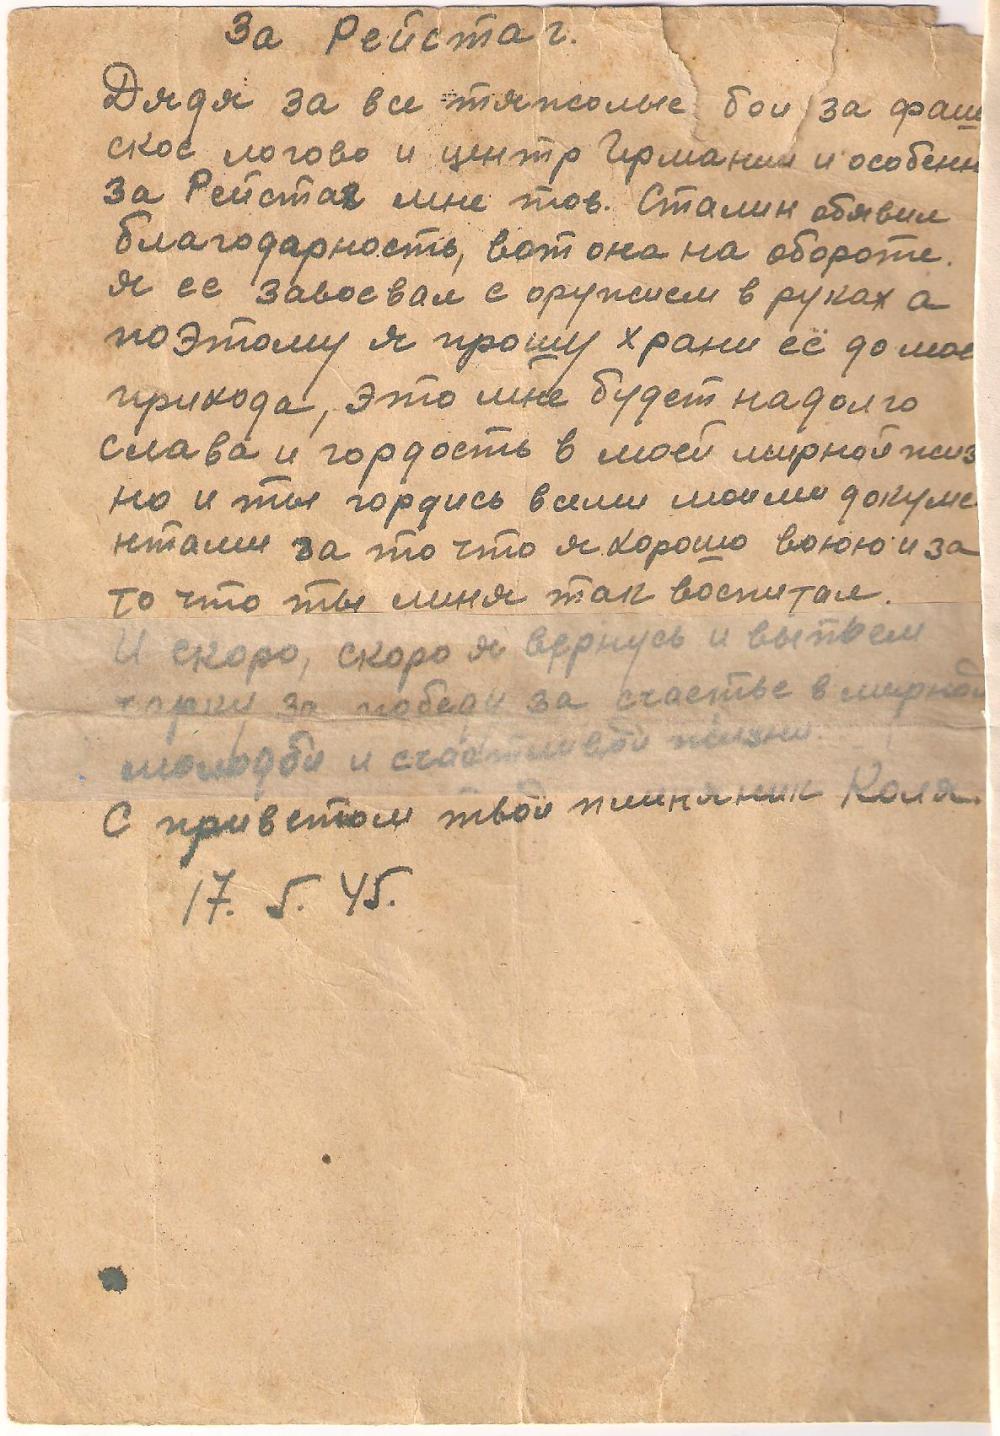 За Рейстаг.
Дядя за все тяжолые бои за фаши
ское логово и центр Германии и особенн
за Рейстаг мне тов. Сталин обявил
благодарность, вот она на обороте.
я ее завоевал с оружием в руках а
поэтому я прошу храни её до мое
прихода, это мне будет надолго
слава и гордость в моей мирной жиз
но и ты гордись всеми моими докуме
нтами за то что я хорошо воюю и за
то что ты меня так воспитал.
И скоро, скоро я вернусь и выпьем
чарку за победу за счастье в мирной
молодой и счастливой жизни.
С приветом твой племяник Коля.
17. 5. 45.